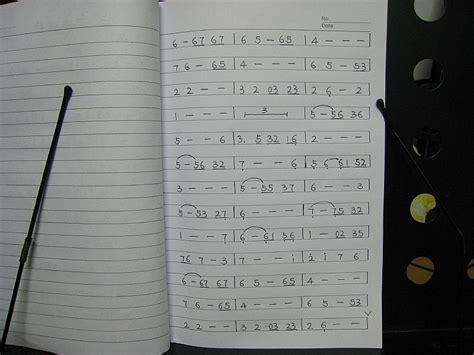 No.
Date
6 – 67 67 | 6 5 – 65 | 4 – – –
7 6 – 65 | 4 – – – | 6 5 – 53
2 2 – – | 3 2 03 23 | 2 6 – 2
1 – – – | 3 | 5 – 56 36
5 – – 6 | 3. 5 32 16 | 2 – – –
5 – 56 32 | 7 – – 6 | 5 6 – 61 52
3 – – – | 5 – 55 37 | 6 – – 3
5 – 53 27 | 6 – – – | 7 – 75 32
1 – – 7 | 6 – 61 56 | 1 – 02 35
76 7 – 3 | 7 – – i | 2 i 7 6
6 – 67 67 | 6 5 – 65 | 4 – – –
7 6 – 65 | 4 – – – | 6 5 – 53
2 2 – – | 3 2 03 23 | 2 6 – –